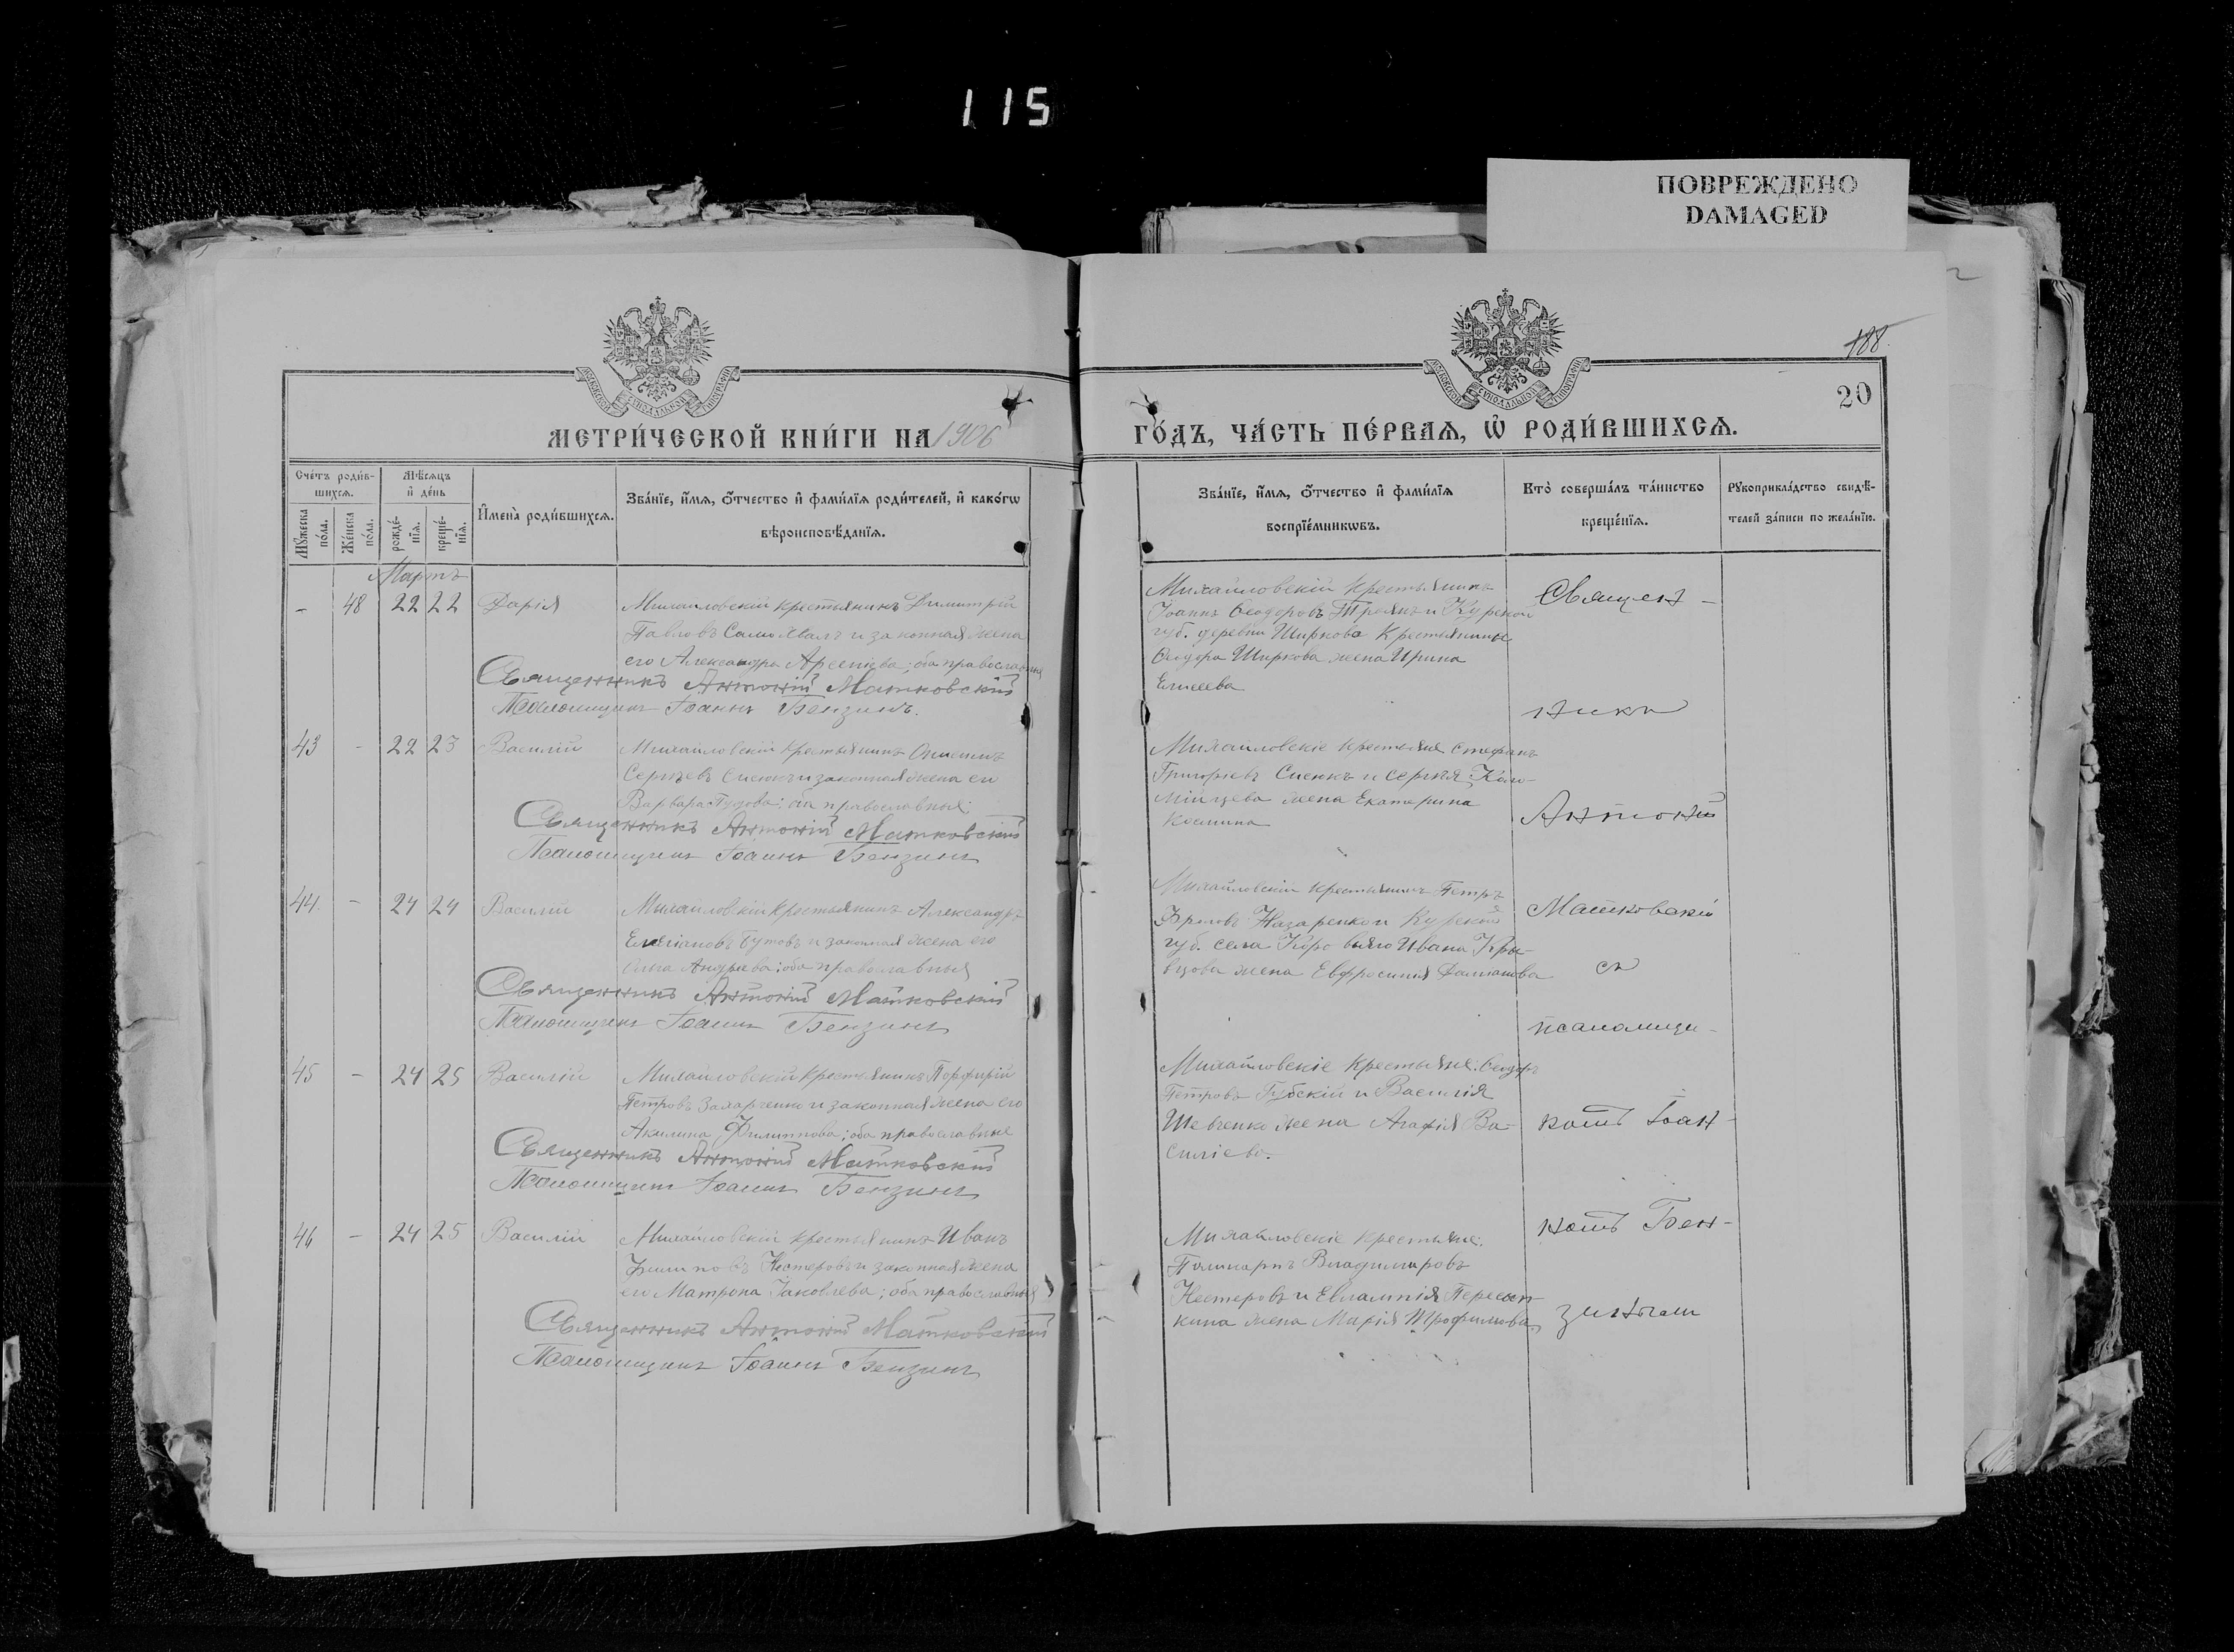 115
ПОВРЕЖДЕНО
DAMAGED
188
20
МОСКОВСКОЙ СУНОДАЛЬНОЙ ТИПОГРАФІИ
МОСКОВСКОЙ СУНОДАЛЬНОЙ ТИПОГРАФІИ
МЕТРИ́ЧЕСКОЙ КНИ́ГИ НА 1906
ГО́ДЪ, ЧА́СТЬ ПЕ́РВАЯ, Ѡ РОДИ́ВШИХСЯ.
Сче́тъ роди́в-
шихся.
Му́жеска по́ла.
Же́нска по́ла.
Мѣ́сяцъ
и҆ де́нь
рожде́-
нїя.
креще́-
нїя.
И҆мена̀ роди́вшихся.
Зва́нїе, и҆́мя, ѻ҆́тчество и҆ фами́лїя роди́телей, и҆ како́гѡ
вѣроисповѣ́данїя.
Зва́нїе, и҆́мя, ѻ҆́тчество и҆ фами́лїя
воспрїе́мникѡвъ.
Кто̀ соверша́лъ та́инство
креще́нїя.
Рꙋкоприкла́дство свидѣ́-
телей за́писи по жела́нїю.
Мартъ
- 48 22 22 Дарія
Михайловскій крестьянинъ Димитрій
Павловъ Самохвалъ и законная жена
его Александра Арсеніева; оба православные
Священникъ Антоній Матковскій
Псаломщикъ Іоаннъ Бензинъ.
Михайловскій крестьянинъ
Іоаннъ Ѳеодоровъ Троянъ и Курской
губ. деревни Ширкова крестьянина
Ѳеодора Ширкова жена Ирина
Елисеева
43 - 22 23 Василій
Михайловскій крестьянинъ Онисимъ
Сергѣевъ Сисюкъ и законная жена его
Варвара; оба православные.
Священникъ Антоній Матковскій
Псаломщикъ Іоаннъ Бензинъ
Михайловскіе крестьяне Стефанъ
Григорьевъ Сисюкъ и Сергѣя Коло-
мійцева жена Екатерина
Козмина
44 - 24 24 Василій
Михайловскій крестьянинъ Александръ
Емеліановъ Бутовъ и законная жена его
Анна Андреева; оба православные
Священникъ Антоній Матковскій
Псаломщикъ Іоаннъ Бензинъ
Михайловскій крестьянинъ Петръ
Назаренко и Курской
губ. села Ивана Кри-
вцова жена Евфросинія
45 - 24 25 Василій
Михайловскій крестьянинъ Порфирій
Петровъ Захарченко и законная жена его
Акилина Филиппова; оба православные
Священникъ Антоній Матковскій
Псаломщикъ Іоаннъ Бензинъ
Михайловскіе крестьяне: Ѳеодоръ
Петровъ Губскій и Василія
Шевченко жена Агафія Ва-
силіева.
46 - 24 25 Василій
Михайловскій крестьянинъ Иванъ
Филиповъ Нестеровъ и законная жена
его Матрона Іаковлева; оба православные
Священникъ Антоній Матковскій
Псаломщикъ Іоаннъ Бензинъ
Михайловскіе крестьяне:
Поликарпъ Владимировъ
Нестеровъ и Евлампія
кина жена Марія Трофимова
Священ-
никъ
Антоній
Матковскій
съ
псаломщи-
комъ Іоан-
номъ Бен-
зинымъ